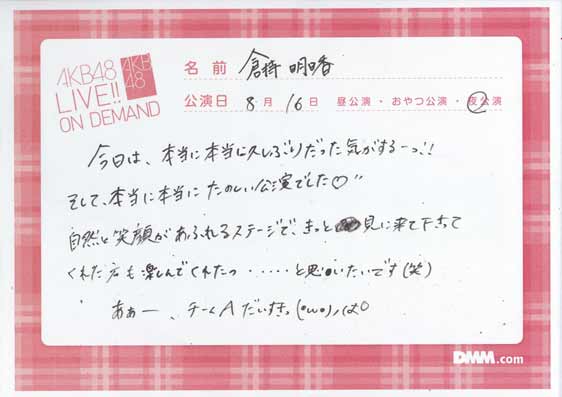 AKB48
LIVE!!
ON DEMAND
AKB
48
名前 倉持明日香
公演日 8月16日 昼公演・おやつ公演・夜公演
今日は、本当に本当に久しぶりだった気がするーっ!!
そして、本当に本当にたのしい公演でした♡"
自然と笑顔があふれるステージで、きっと見に来て下さって
くれた方も楽しんでくれたっ‥‥‥と思いたいです(笑)
あぁー、チームAだいすきっ(・ω・)ノ
DMM.com